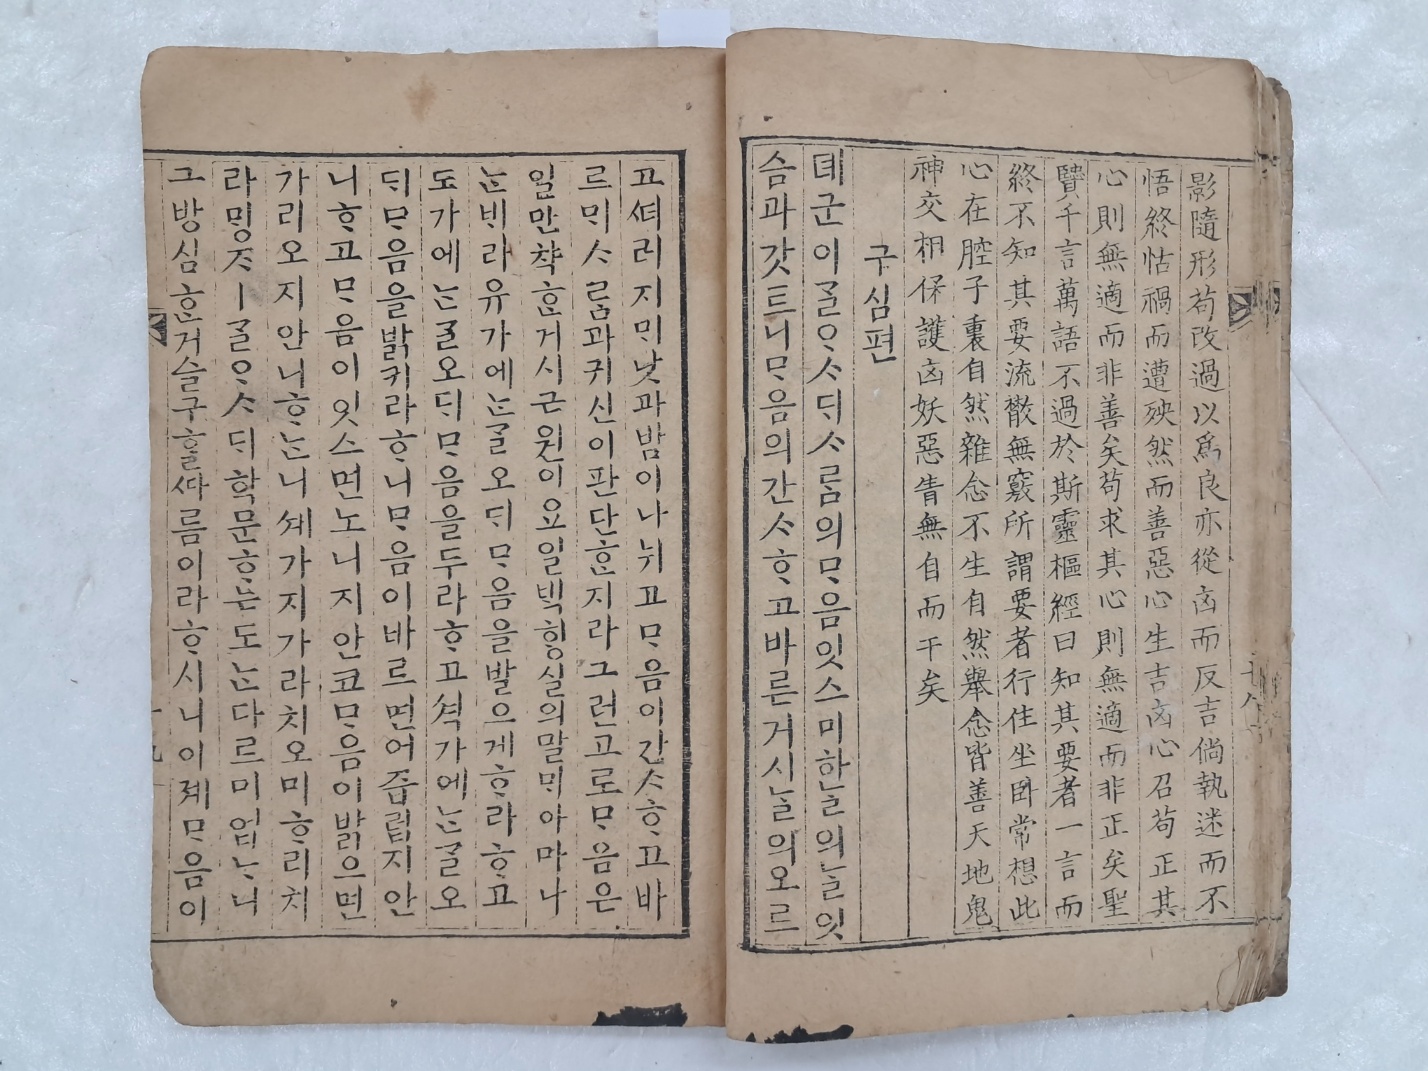 影隨形苟改過以爲良亦從凶而反吉倘執迷而不
悟終怙禍而遭殃然而善惡心生吉凶心召苟正其
心則無適而非善矣苟求其心則無適而非正矣聖
贒千言萬語不過於斯靈樞經曰知其要者一言而
終不知其要流散無竅所謂要者行住坐卧常想此
心在腔子裏自然雜念不生自然擧念皆善天地鬼
神交相保護凶妖惡眚無自而干矣
구심편
뎨군이ᄀᆞᆯᄋᆞᄉᆞᄃᆡᄉᆞᄅᆞᆷ의ᄆᆞ음잇스미한ᄂᆞᆯ의ᄂᆞᆯ잇
슴과갓트니ᄆᆞ음의간ᄉᆞᄒᆞ고바른거시ᄂᆞᆯ의오르
고ᄯᅥ러지ᄆᆡ낫과밤이나뉘고ᄆᆞ음이간ᄉᆞᄒᆞ고바
르ᄆᆡᄉᆞᄅᆞᆷ과귀신이판단ᄒᆞᆫ지라그런고로ᄆᆞ음은
일만챡ᄒᆞᆫ거시근원이요일ᄇᆡᆨᄒᆡᆼ실의말ᄆᆡ아마나
ᄂᆞᆫᄇᆡ라유가에ᄂᆞᆫᄀᆞᆯ오ᄃᆡᄆᆞ음을발으게ᄒᆞ라ᄒᆞ고
도가에ᄂᆞᆫᄀᆞᆯ오ᄃᆡᄆᆞ음을두라ᄒᆞ고셕가에ᄂᆞᆫᄀᆞᆯ오
ᄃᆡᄆᆞ음을밝키라ᄒᆞ니ᄆᆞ음이바르면어즙럽지안
니ᄒᆞ고ᄆᆞ음이잇스면노니지안코ᄆᆞ음이밝으면
가리오지안니ᄒᆞᄂᆞ니셰가지가라치오미ᄒᆞᆫ리치
라ᄆᆡᆼᄌᆞㅣᄀᆞᆯᄋᆞᄉᆞᄃᆡ학문ᄒᆞ는도ᄂᆞᆫ다르미업ᄂᆞ니
그방심ᄒᆞᆫ거슬구ᄒᆞᆯᄯᅡ름이라ᄒᆞ시니이졔ᄆᆞ음이